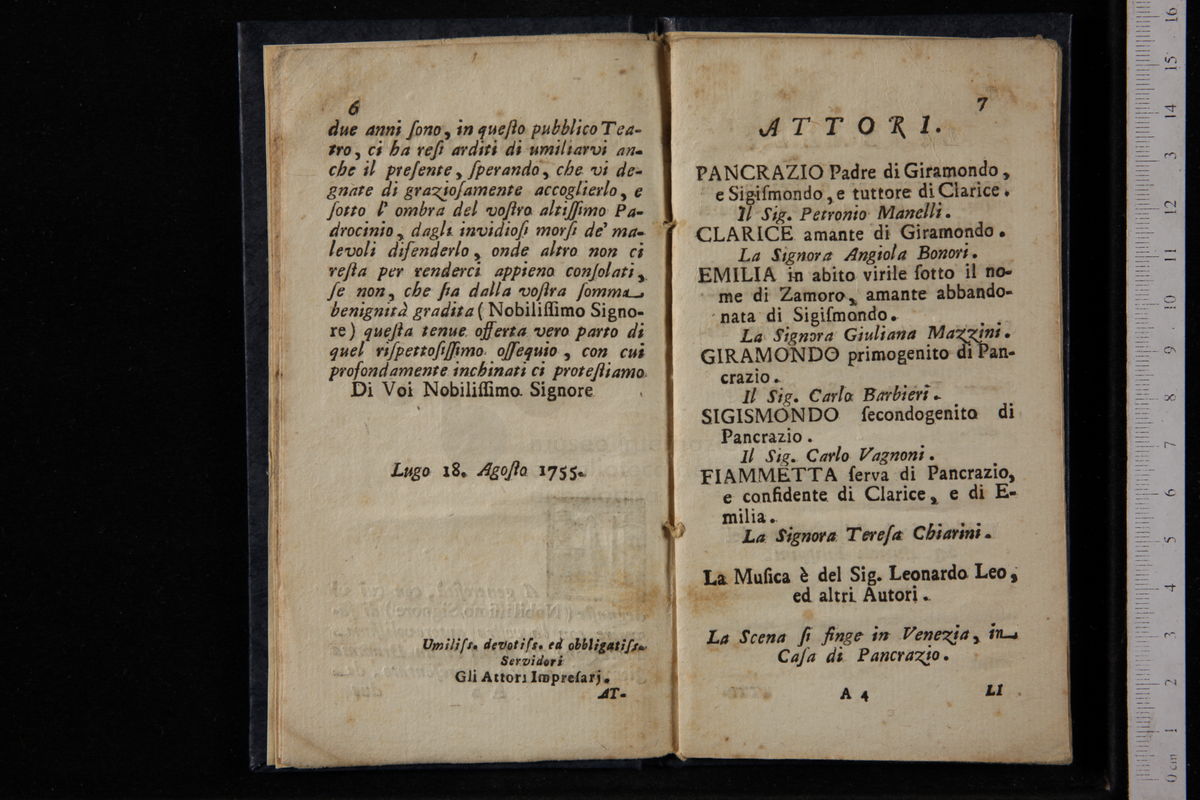 6
due anni ſono, in queſto pubblico Tea-
tro, ci ha reſi arditi di umiliarvi an-
che il preſente, ſperando, che vi de-
gnate di grazioſamente accoglierlo, e
ſotto l' ombra del voſtro altiſſimo Pa-
drocinio, dagli invidioſi morſi de' ma-
levoli difenderlo, onde altro non ci
reſta per renderci appieno conſolati,
ſe non, che ſia dalla voſtra ſomma
benignità gradita (Nobiliſſimo Signo-
re) queſta tenue offerta vero parto di
quel riſpettoſiſſimo oſſequio, con cui
profondamente inchinati ci proteſtiamo
Di Voi Nobiliſſimo Signore
Lugo 18. Agoſto 1755.
Umiliſs. devotiſs. ed obbligatiſs.
Servidori
Gli Attori Impreſarj.
AT-
7
ATTORI.
PANCRAZIO Padre di Giramondo,
e Sigiſmondo, e tuttore di Clarice.
Il Sig. Petronio Manelli.
CLARICE amante di Giramondo.
La Signora Angiola Bonori.
EMILIA in abito virile ſotto il no-
me di Zamoro, amante abbando-
nata di Sigiſmondo.
La Signora Giuliana Mazzini.
GIRAMONDO primogenito di Pan-
crazio.
Il Sig. Carlo Barbieri.
SIGISMONDO ſecondogenito di
Pancrazio.
Il Sig. Carlo Vagnoni.
FIAMMETTA ſerva di Pancrazio,
e confidente di Clarice, e di E-
milia.
La Signora Tereſa Chiarini.
La Muſica è del Sig. Leonardo Leo,
ed altri Autori.
La Scena ſi finge in Venezia, in
Caſa di Pancrazio.
A 4
LI
16
15
14
13
12
11
10
9
8
7
6
5
4
3
2
1
0 cm